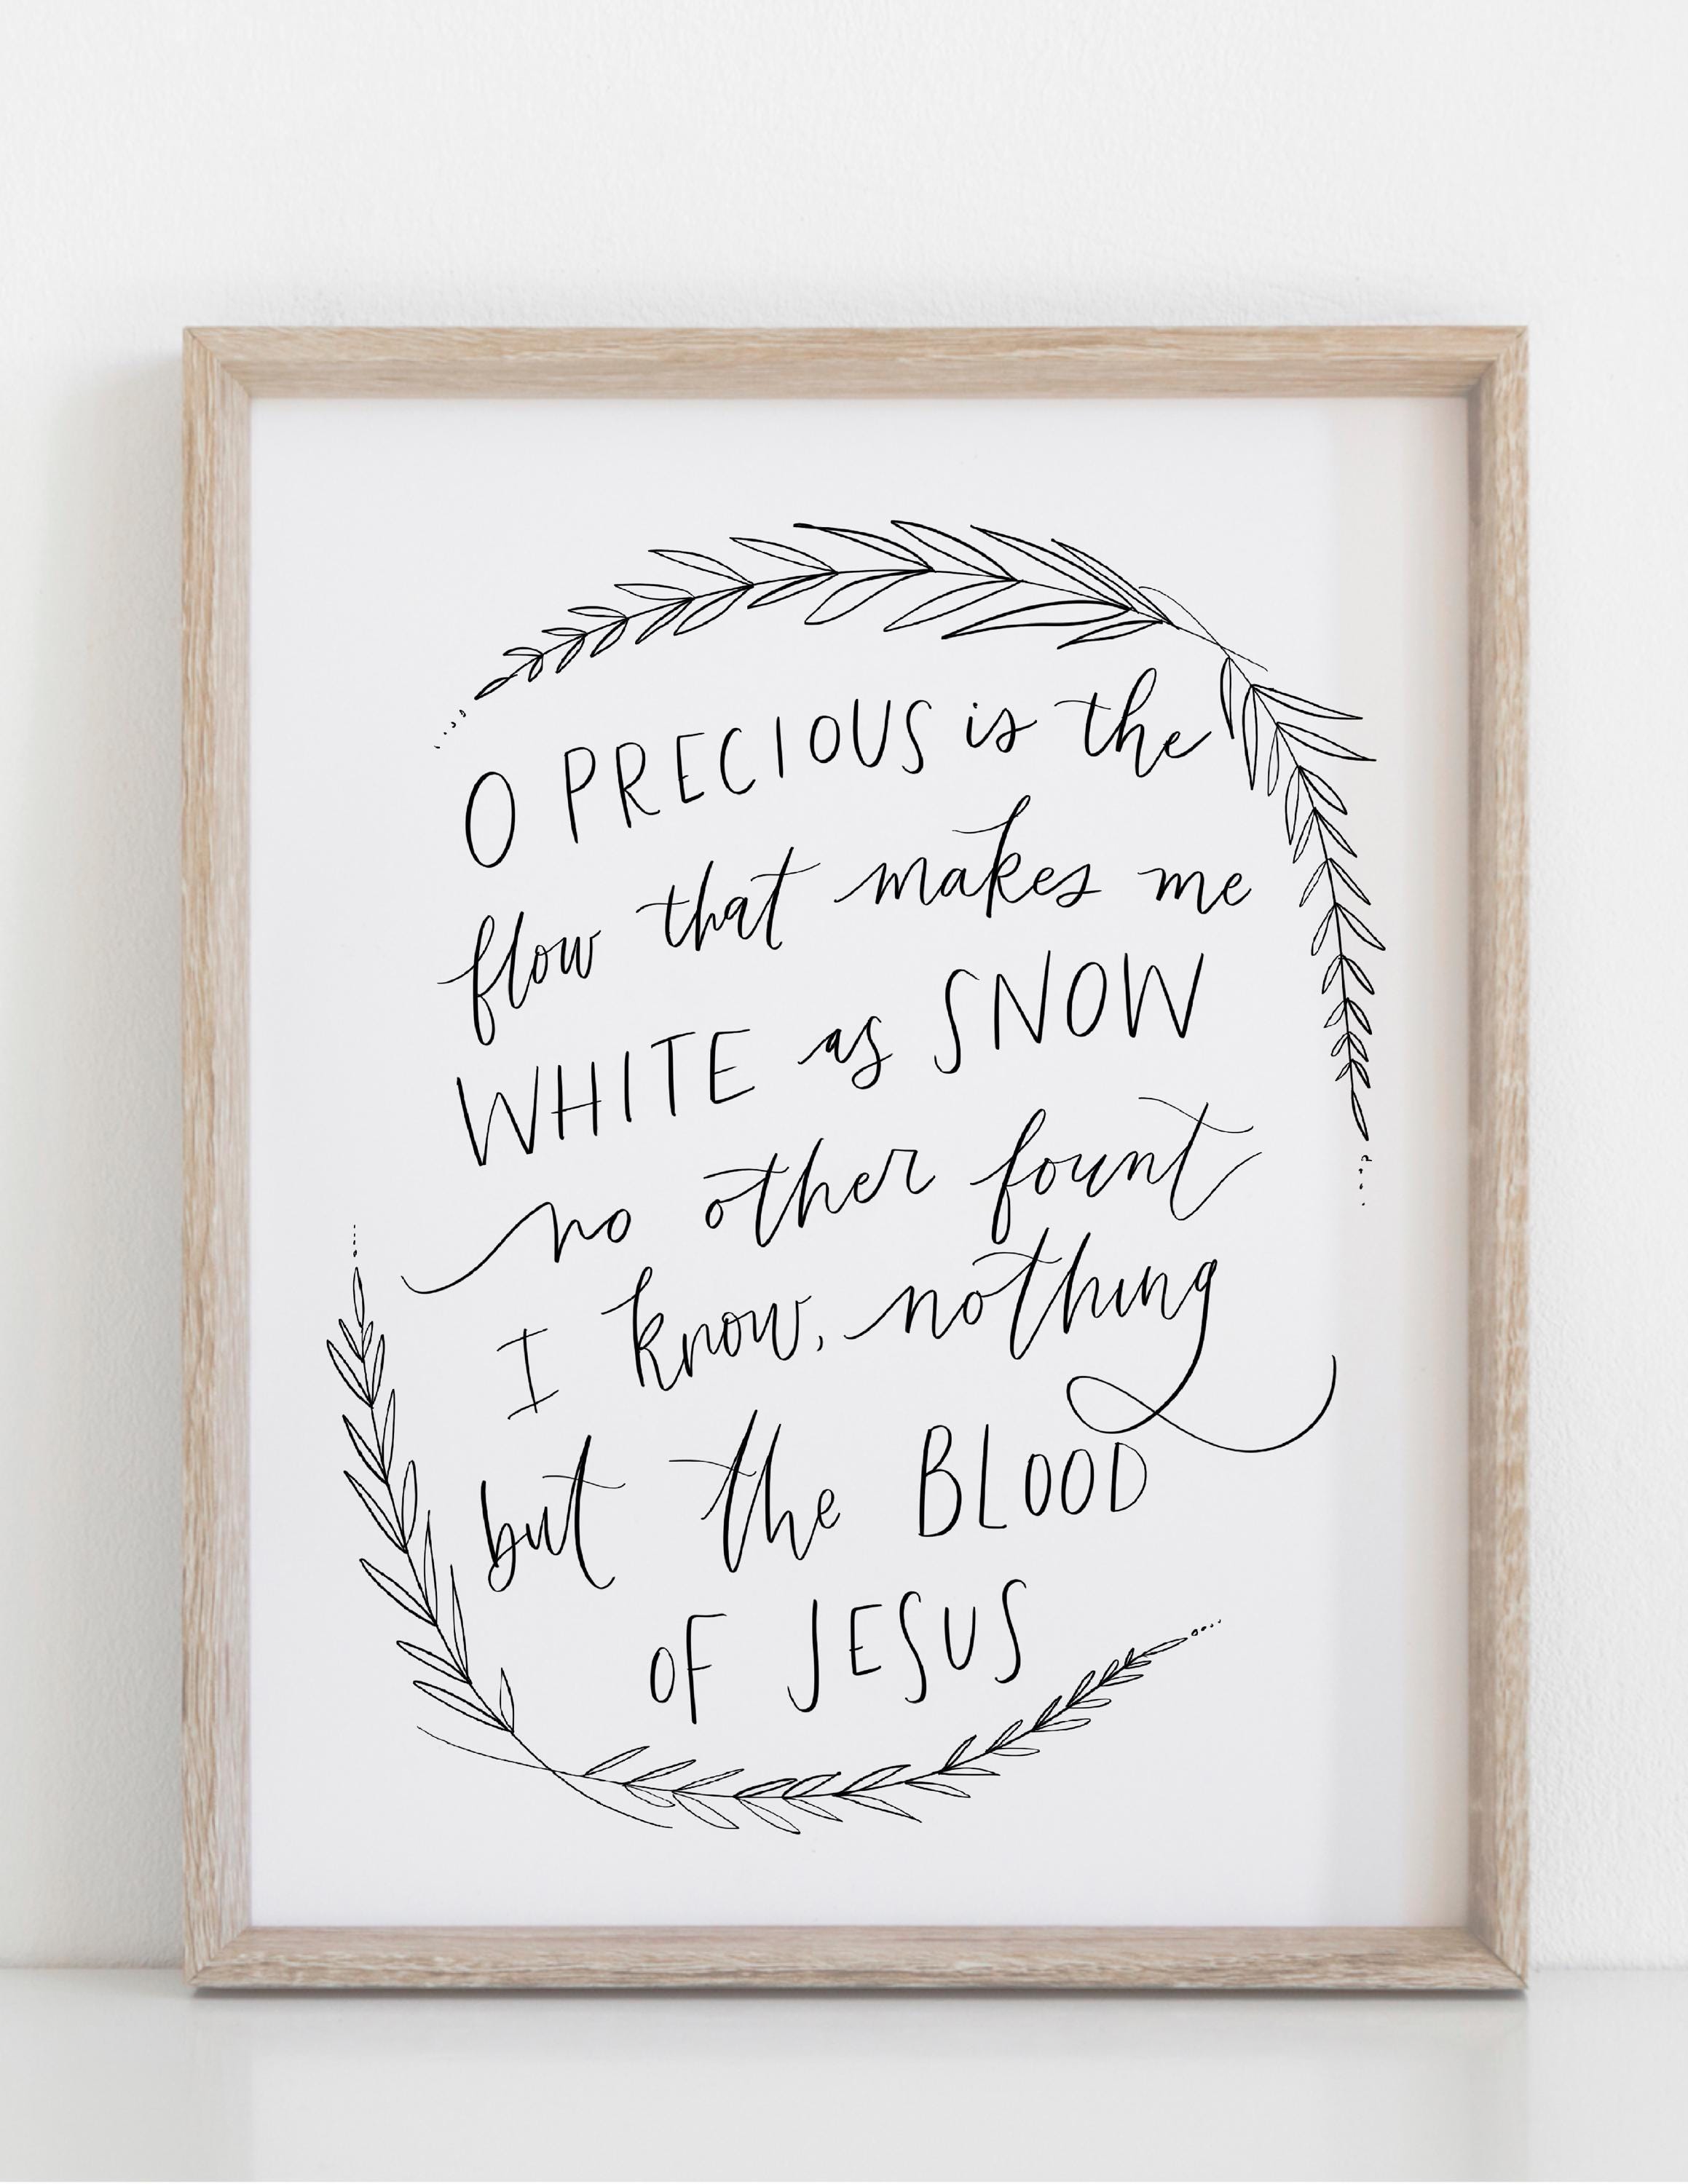 O PRECIOUS is the
flow that makes me
WHITE as SNOW
no other fount
I know, nothing
but the BLOOD
OF JESUS